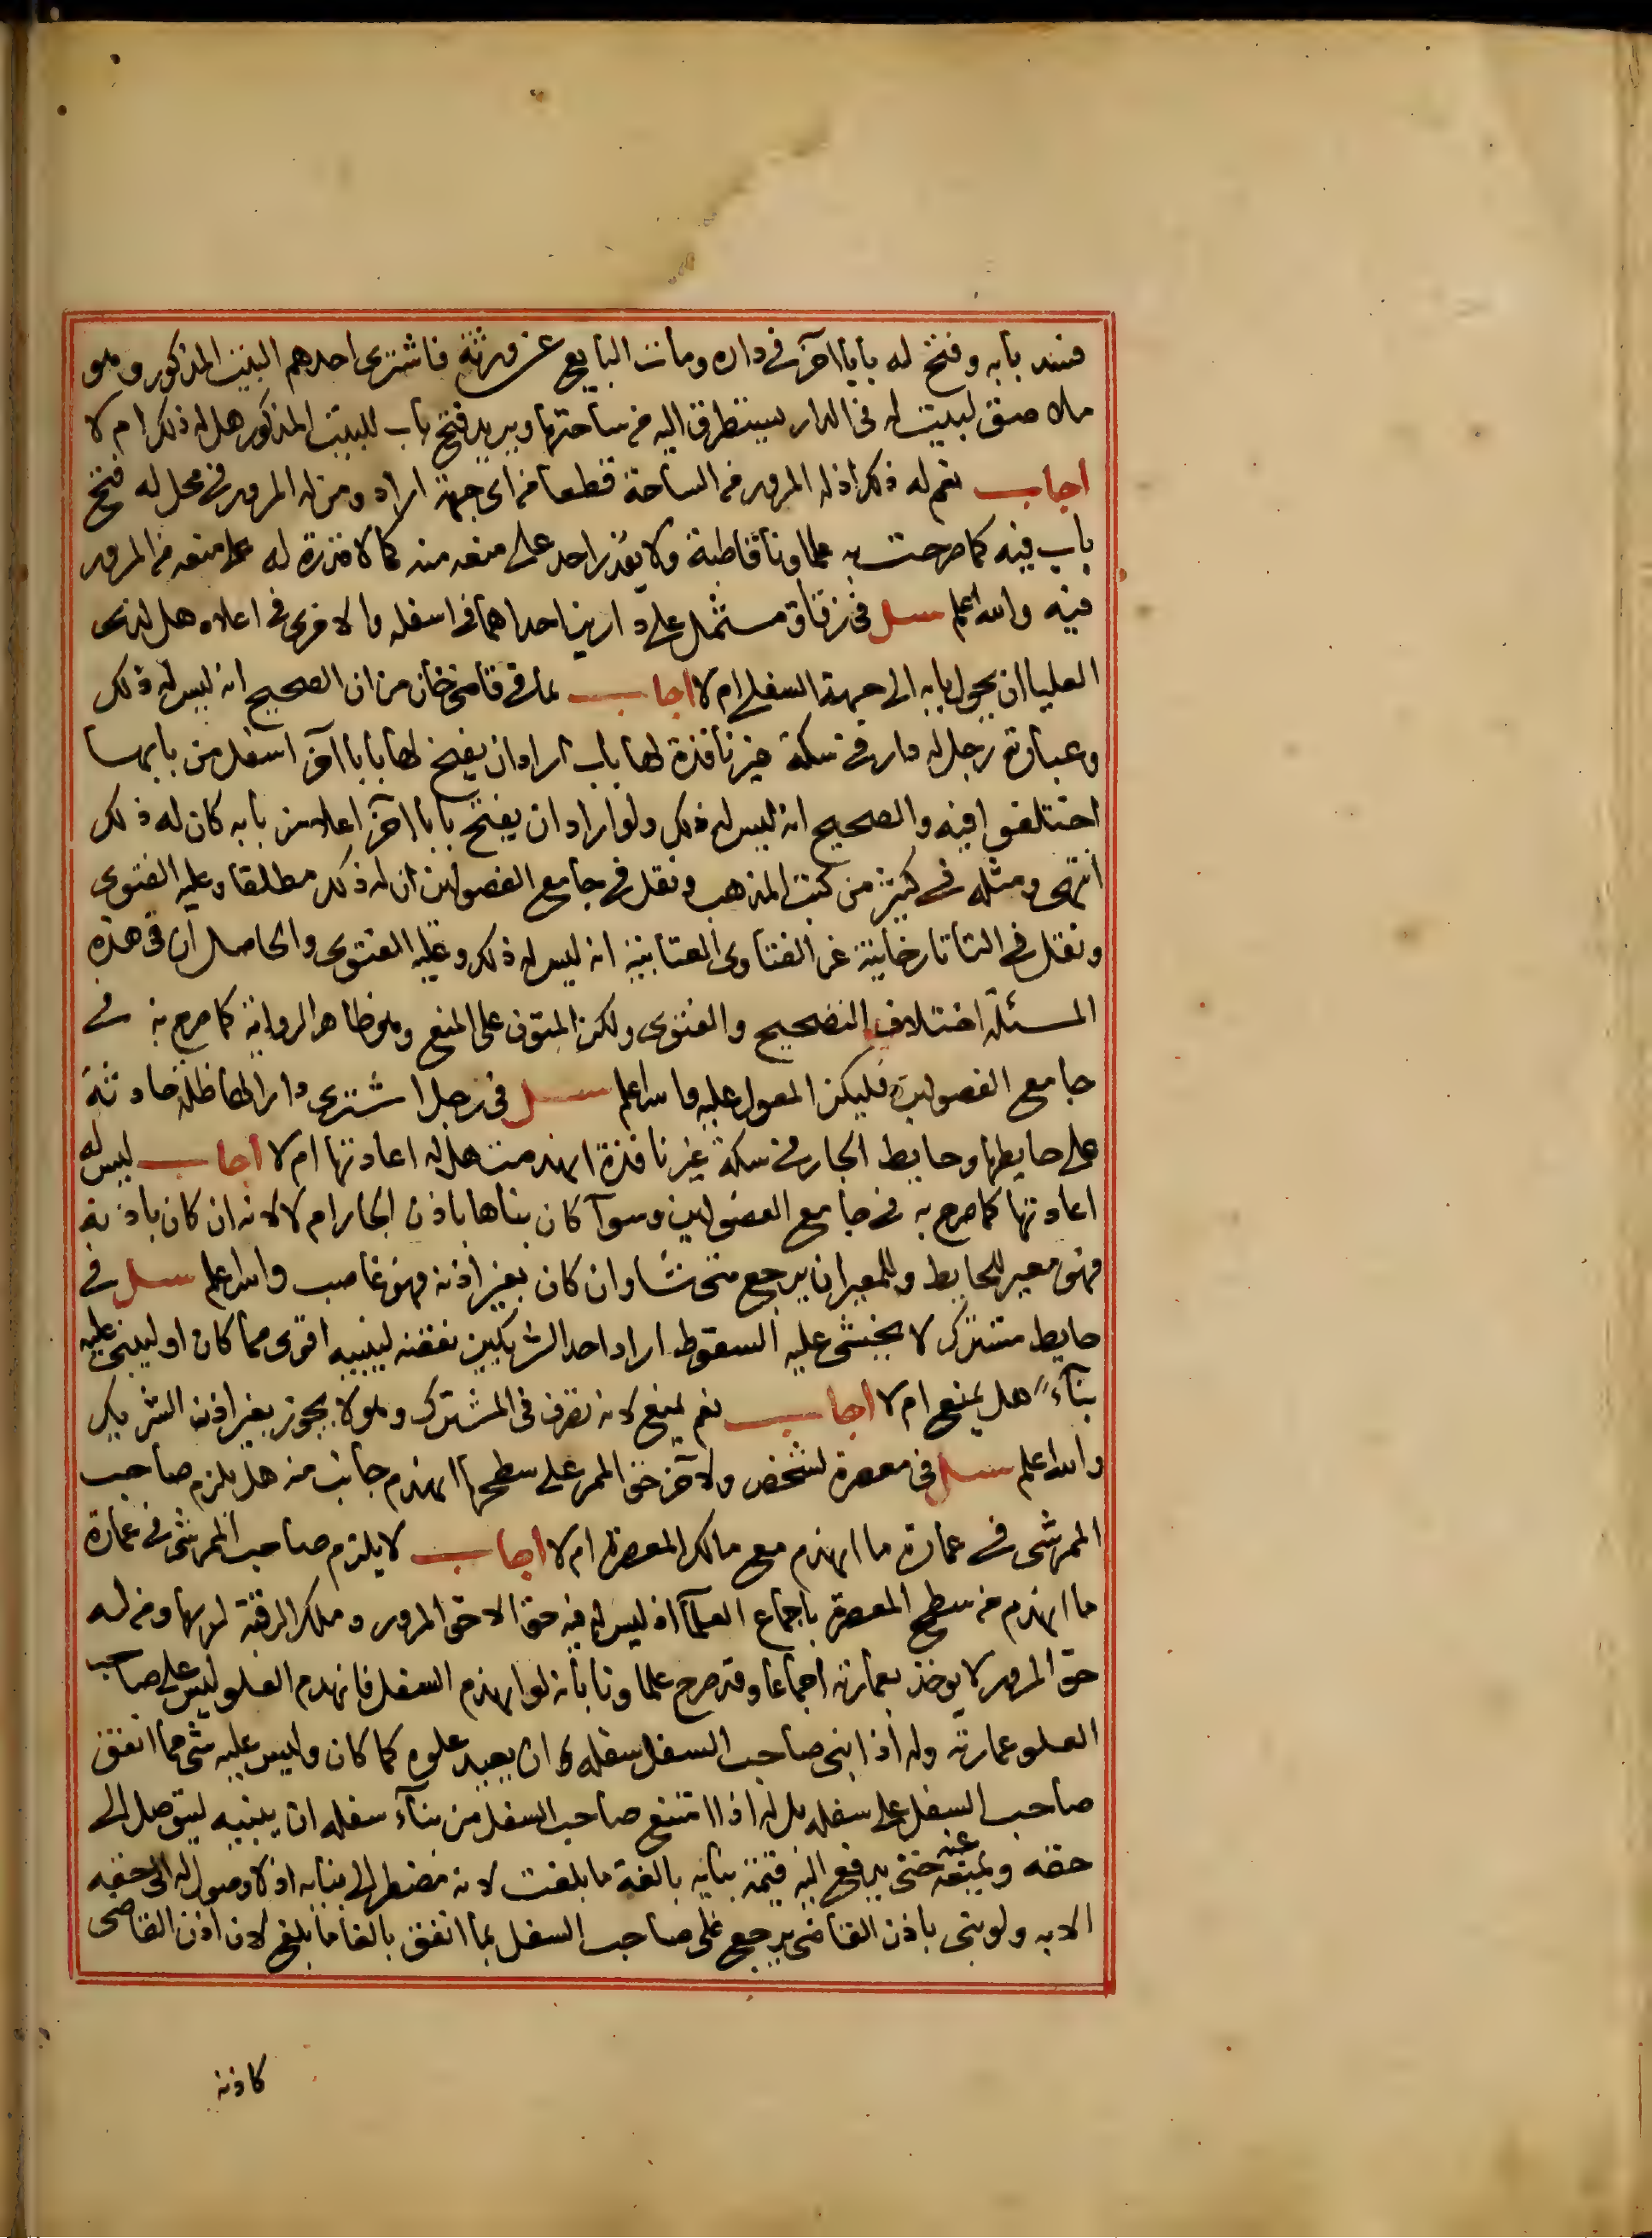 فسد بابه وفتح له بابا آخر فى داره ومات البايع عن ورثة فاشترى احدهم البيت المذكور وهو
ملاصق لبيت له فى الدار يستطرق اليه من ساحتها ويريد فتح باب للبيت المذكور هل له ذلك ام لا
اجاب نعم له ذلك اذ له المرور من الساحة قطعا من اى جهة اراد ومن له المرور فى محل له فتح
باب فيه كما صرحت به علماونا قاطبة ولا يقدر احد على منعه منه كما لا قدرة له على منعه من المرور
فيه والله اعلم سل فى زقاق مشتمل على دارين احداهما فى اسفله والاخرى فى اعلاه هل لذى
العليا ان يحول بابه الى جهة السفلى ام لا اجاب بما فى قاضى خان من ان الصحيح انه ليس له ذلك
وعبارته رجل له دار فى سكة غير نافذة لها باب اراد ان يفتح لها بابا آخر اسفل من بابها
اختلفوا فيه والصحيح انه ليس له ذلك ولو اراد ان يفتح بابا آخر اعلا من بابه كان له ذلك
انتهى ومثله فى كثير من كتب المذهب ونقل فى جامع الفصولين ان له ذلك مطلقا وعليه الفتوى
ونقل فى التاتارخانية عن الفتاوى العتابية انه ليس له ذلك وعليه الفتوى والحاصل ان فى هذه
المسئلة اختلاف التصحيح والفتوى ولكن المتون على المنع وهو ظاهر الرواية كما صرح به فى
جامع الفصولين فليكن المعول عليه والله اعلم سل فى رجل اشترى دارا لها ظلة حادثة
على حايطها وحايط الجار فى سكة غير نافذة انهدمت هل له اعادتها ام لا اجاب ليس له
اعادتها كما صرح به فى جامع الفصولين وسوآ كان بناها باذن الجار ام لا لانه ان كان باذنه
فهو معير للحايط وللمعير ان يرجع متى شا وان كان بغير اذنه فهو غاصب والله اعلم سل فى
حايط مشترك لا يخشى عليه السقوط اراد احد الشريكين نقضه ليبنيه اقوى مما كان او ليبنى عليه
بنآء هل يمنع ام لا اجاب نعم يمنع لانه تصرف فى المشترك وهو لا يجوز بغير اذن الشريك
والله اعلم سل فى معصرة لشخص ولاخر حق الممر على سطحها انهدم جانب منه هل يلزم صاحب
الممر شى فى عمارة ما انهدم مع مالك المعصرة ام لا اجاب لا يلزم صاحب الممر شى فى عمارة
ما انهدم من سطح المعصرة باجماع العلمآ اذ ليس له فيه حق الا حق المرور وملك الرقبة لربها ومن له
حق المرور لا يوخذ بعمارته اجماعا وقد صرح علماونا بانه لو انهدم السفل فانهدم العلو ليس على صاحب
العلو عمارته وله اذا ابنى صاحب السفل سفله ان يعيد علوه كما كان وليس عليه شى مما انفق
صاحب السفل على سفله بل له اذا امتنع صاحب السفل من بنآء سفله ان يبنيه ليتوصل الى
حقه ويمنعه عنه حتى يدفع اليه قيمة بنايه بالغة ما بلغت لانه مضطر الى بنايه اذ لا وصول له الى حقه
الا به ولو بنى باذن القاضى يرجع على صاحب السفل بما انفق بالغا ما بلغ لان اذن القاضى
كاذنه